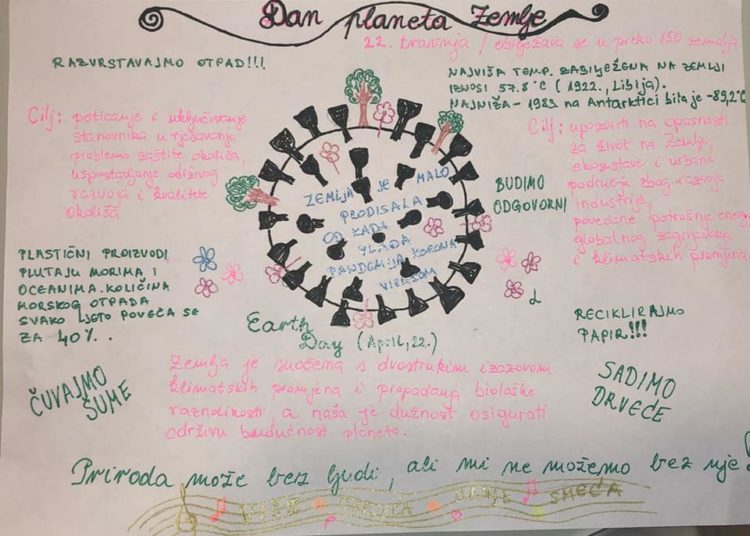 Dan planeta Zemlje
22. travnja / obilježava se u preko 150 zemalja
RAZVRSTAVAJMO OTPAD!!!
NAJVIŠA TEMP. ZABILJEŽENA NA ZEMLJI
IZNOSI 57.8°C (1922., Libija).
NAJNIŽA - 1983. na Antarktici bila je -89,2°C
Cilj: poticanje i uključivanje
stanovnika u rješavanje
problema zaštite okoliša,
uspostavljanje održivog
razvoja i kvalitete
okoliša
Cilj: upozoriti na opasnosti
za život na Zemlji,
ekosustave i urbana
područja zbog razvoja
industrije,
povećane potrošnje energije
globalnog zagrijavanja
i klimatskih promjena.
ZEMLJA JE MALO
PRODISALA
OD KADA
VLADA
PANDEMIJA KORONA
VIRUSOM
BUDIMO
ODGOVORNI
PLASTIČNI PROIZVODI
PLUTAJU MORIMA I
OCEANIMA. KOLIČINA
MORSKOG OTPADA
SVAKO LJETO POVEĆA SE
ZA 40%..
Earth
Day (April, 22.)
RECIKLIRAJMO
PAPIR!!!
ČUVAJMO
ŠUME
Zemlja je suočena s dvostrukim izazovom
klimatskih promjena i propadanja biološke
raznolikosti, a naša je dužnost osigurati
održivu budućnost planeta.
SADIMO
DRVEĆE
Priroda može bez ljudi, ali mi ne možemo bez nje!
MANJE SMEĆA